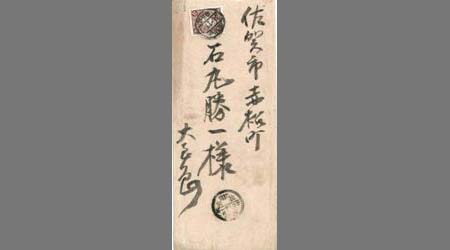 佐賀市赤松町
石丸勝一様